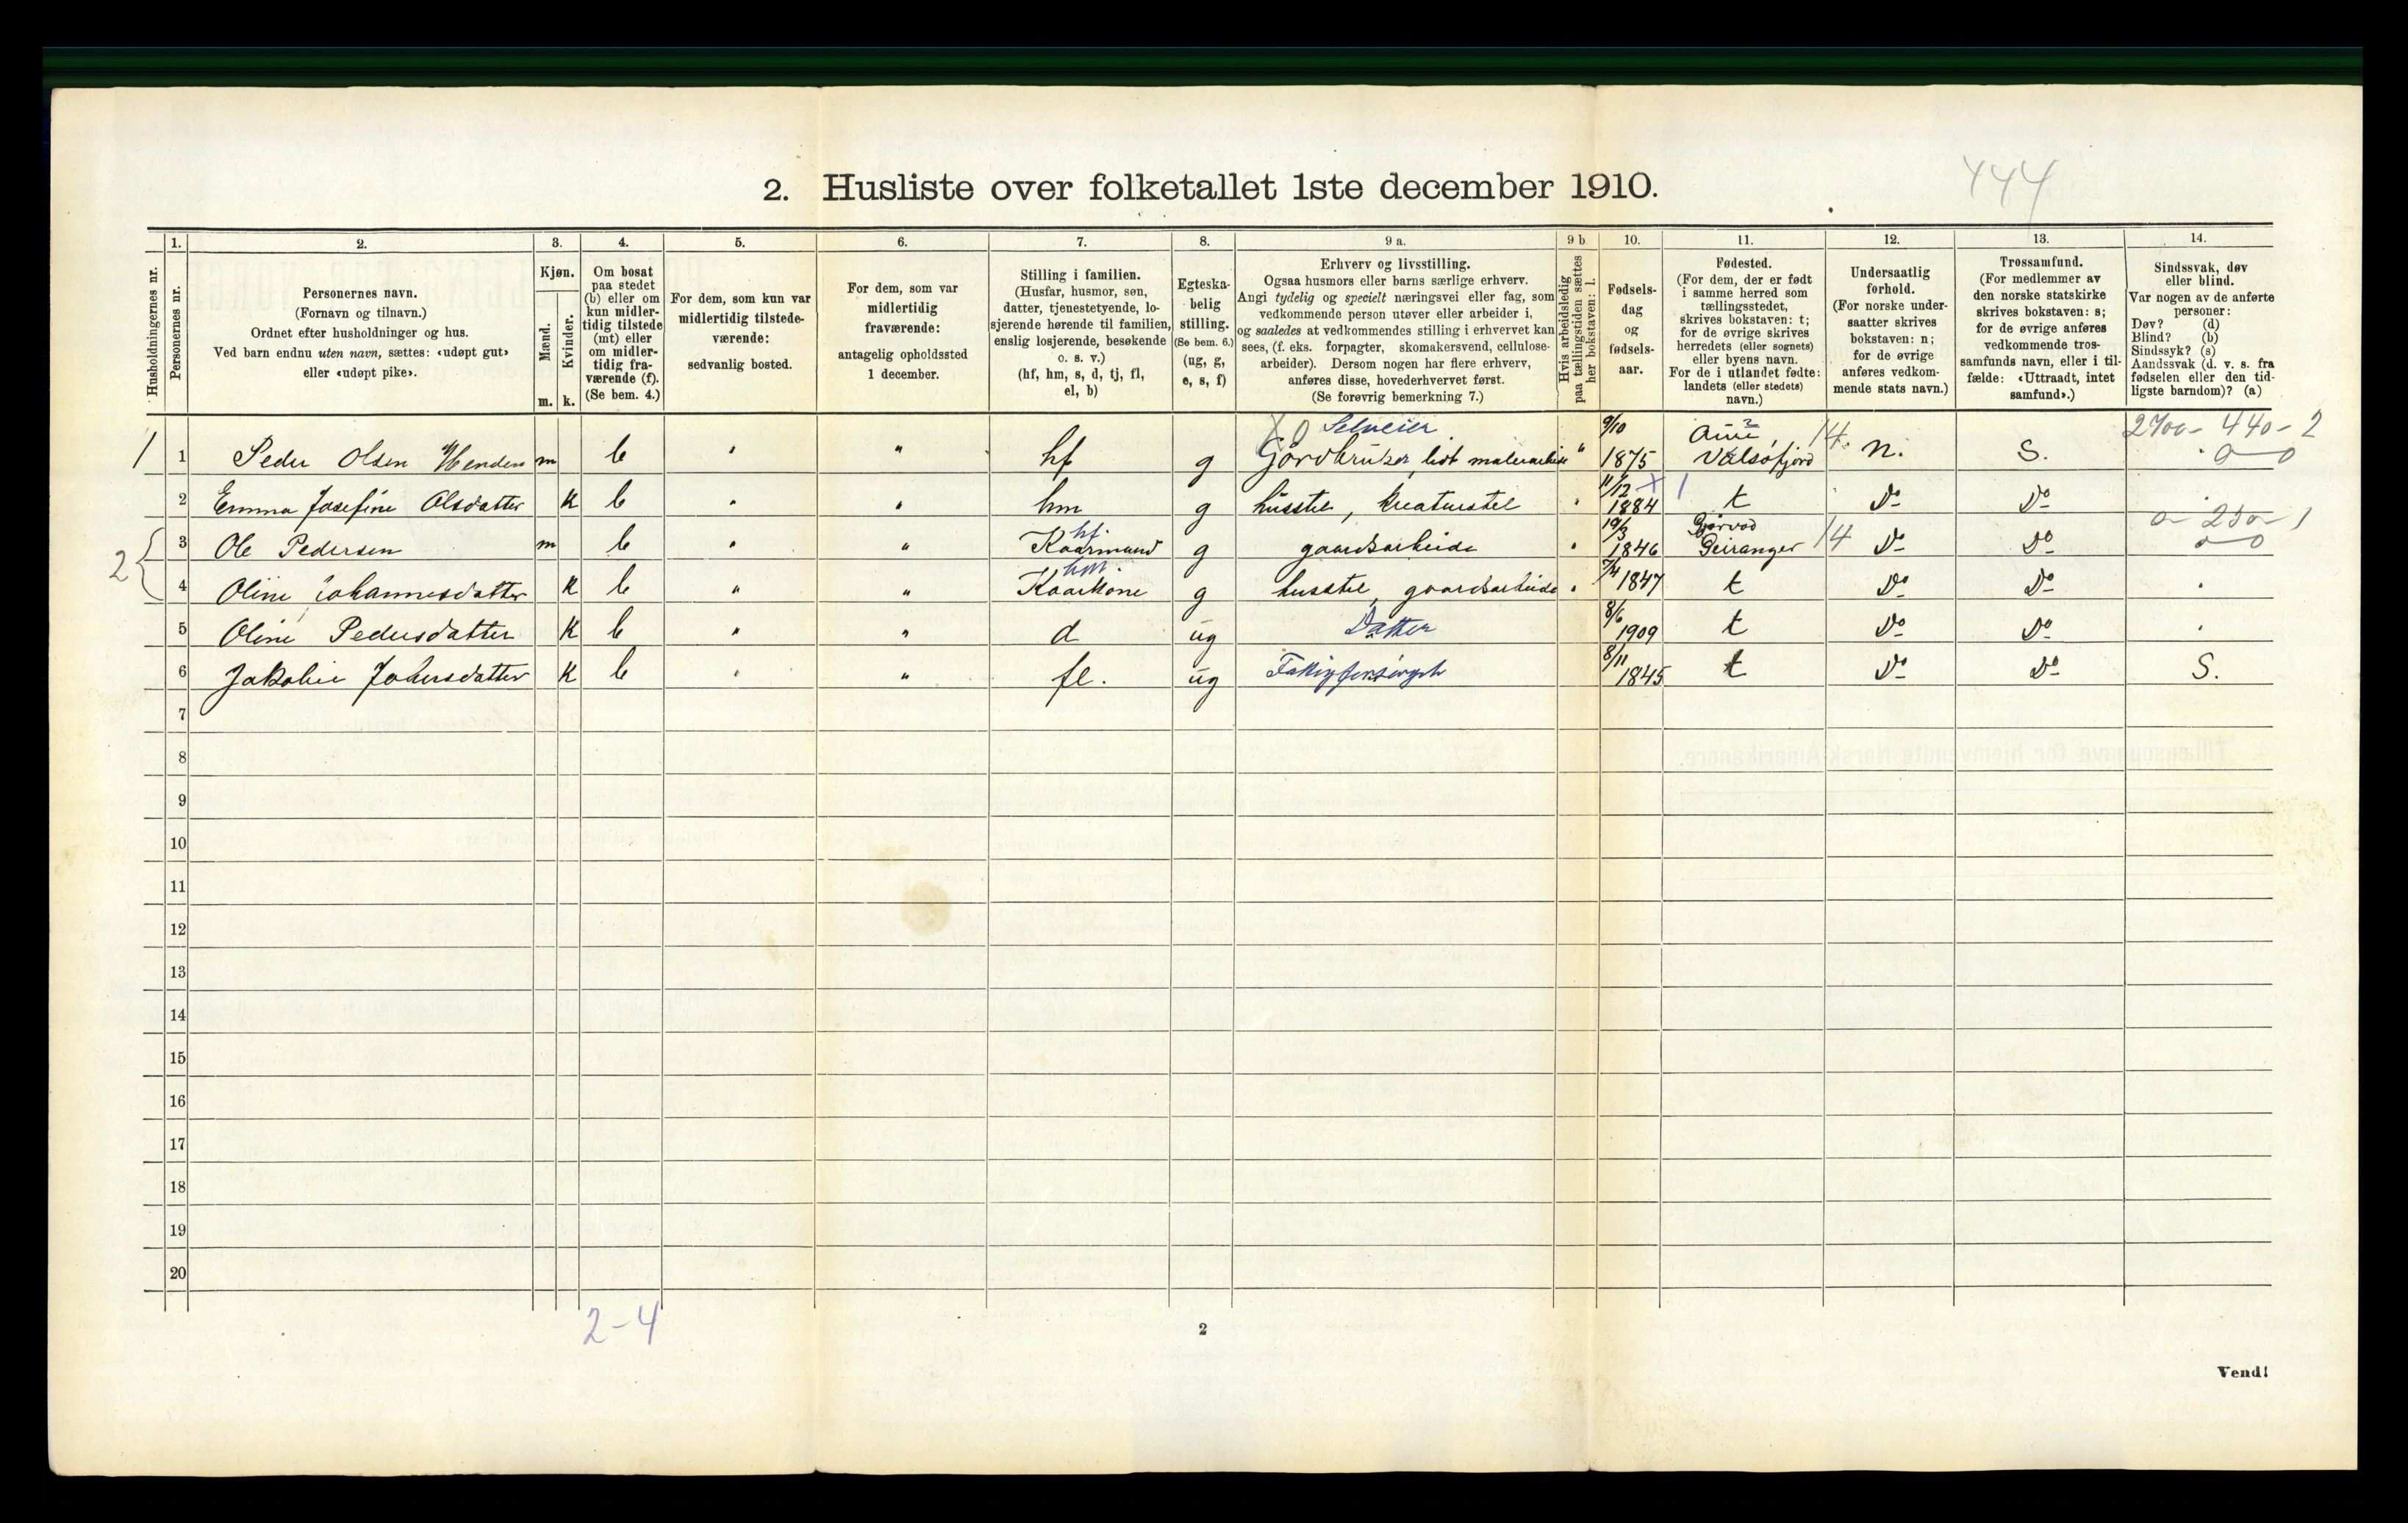 444
2. Husliste over folketallet 1ste december 1910.
Husholdningernes nr.
1. Personernes nr.
2. Personernes navn.
(Fornavn og tilnavn.)
Ordnet efter husholdninger og hus.
Ved barn endnu uten navn, sættes: «udøpt gut»
eller «udøpt pike».
3. Kjøn.
Mænd. m.
Kvinder. k.
4. Om bosat
paa stedet
(b) eller om
kun midler-
tidig tilstede
(mt) eller
om midler-
tidig fra-
værende (f).
(Se bem. 4.)
5. For dem, som kun var
midlertidig tilstede-
værende:
sedvanlig bosted.
6. For dem, som var
midlertidig
fraværende:
antagelig opholdssted
1 december.
7. Stilling i familien.
(Husfar, husmor, søn,
datter, tjenestetyende, lo-
sjerende hørende til familien,
enslig losjerende, besøkende
o. s. v.)
(hf, hm, s, d, tj, fl,
el, b)
8. Egteska-
belig
stilling.
(Se bem. 6.)
(ug, g,
e, s, f)
9 a. Erhverv og livsstilling.
Ogsaa husmors eller barns særlige erhverv.
Angi tydelig og specielt næringsvei eller fag, som
vedkommende person utøver eller arbeider i,
og saaledes at vedkommendes stilling i erhvervet kan
sees, (f. eks. forpagter, skomakersvend, cellulose-
arbeider). Dersom nogen har flere erhverv,
anføres disse, hovederhvervet først.
(Se forøvrig bemerkning 7.)
9 b Hvis arbeidsledig
paa tællingstiden sættes
her bokstaven: l.
10. Fødsels-
dag
og
fødsels-
aar.
11. Fødested.
(For dem, der er født
i samme herred som
tællingsstedet,
skrives bokstaven: t;
for de øvrige skrives
herredets (eller sognets)
eller byens navn.
For de i utlandet fødte:
landets (eller stedets)
navn.)
12. Undersaatlig
forhold.
(For norske under-
saatter skrives
bokstaven: n;
for de øvrige
anføres vedkom-
mende stats navn.)
13. Trossamfund.
(For medlemmer av
den norske statskirke
skrives bokstaven: s;
for de øvrige anføres
vedkommende tros-
samfunds navn, eller i til-
fælde: «Uttraadt, intet
samfund».)
14. Sindssvak, døv
eller blind.
Var nogen av de anførte
personer:
Døv? (d)
Blind? (b)
Sindssyk? (s)
Aandssvak (d. v. s. fra
fødselen eller den tid-
ligste barndom)? (a)
X0 Selveier 9/10 Aure 2 14 2700- 440-2
1 1 Peder Olsen Henden m b " " hf g Gårdbruker, lidt malerarbeide " 1875 Valsøfjord n. S. 0-0
11/12 X 1
2 Emma Josefine Olsdatter K b " " hm g husstel, kreaturstel " 1884 t Do Do
hf 19/3 0-250-1
2 3 Ole Pedersen m b " " Kaarmand g gaardsarbeide " 1846 Geiranger 14 Do Do 0-0
hm
4 Oline Johannesdatter K b " " Kaarkone g husstel, gaardsarbeide " 7/4 1847 t Do Do
5 Oline Pedersdatter K b " " d ug Datter 8/6 1909 t Do Do
6 Jakobie Johnsdatter K b " " fl. ug Fattigforsørget 8/11 1845 t Do Do S.
7
8
9
10
11
12
13
14
15
16
17
18
19
20
2-4
2
Vend!